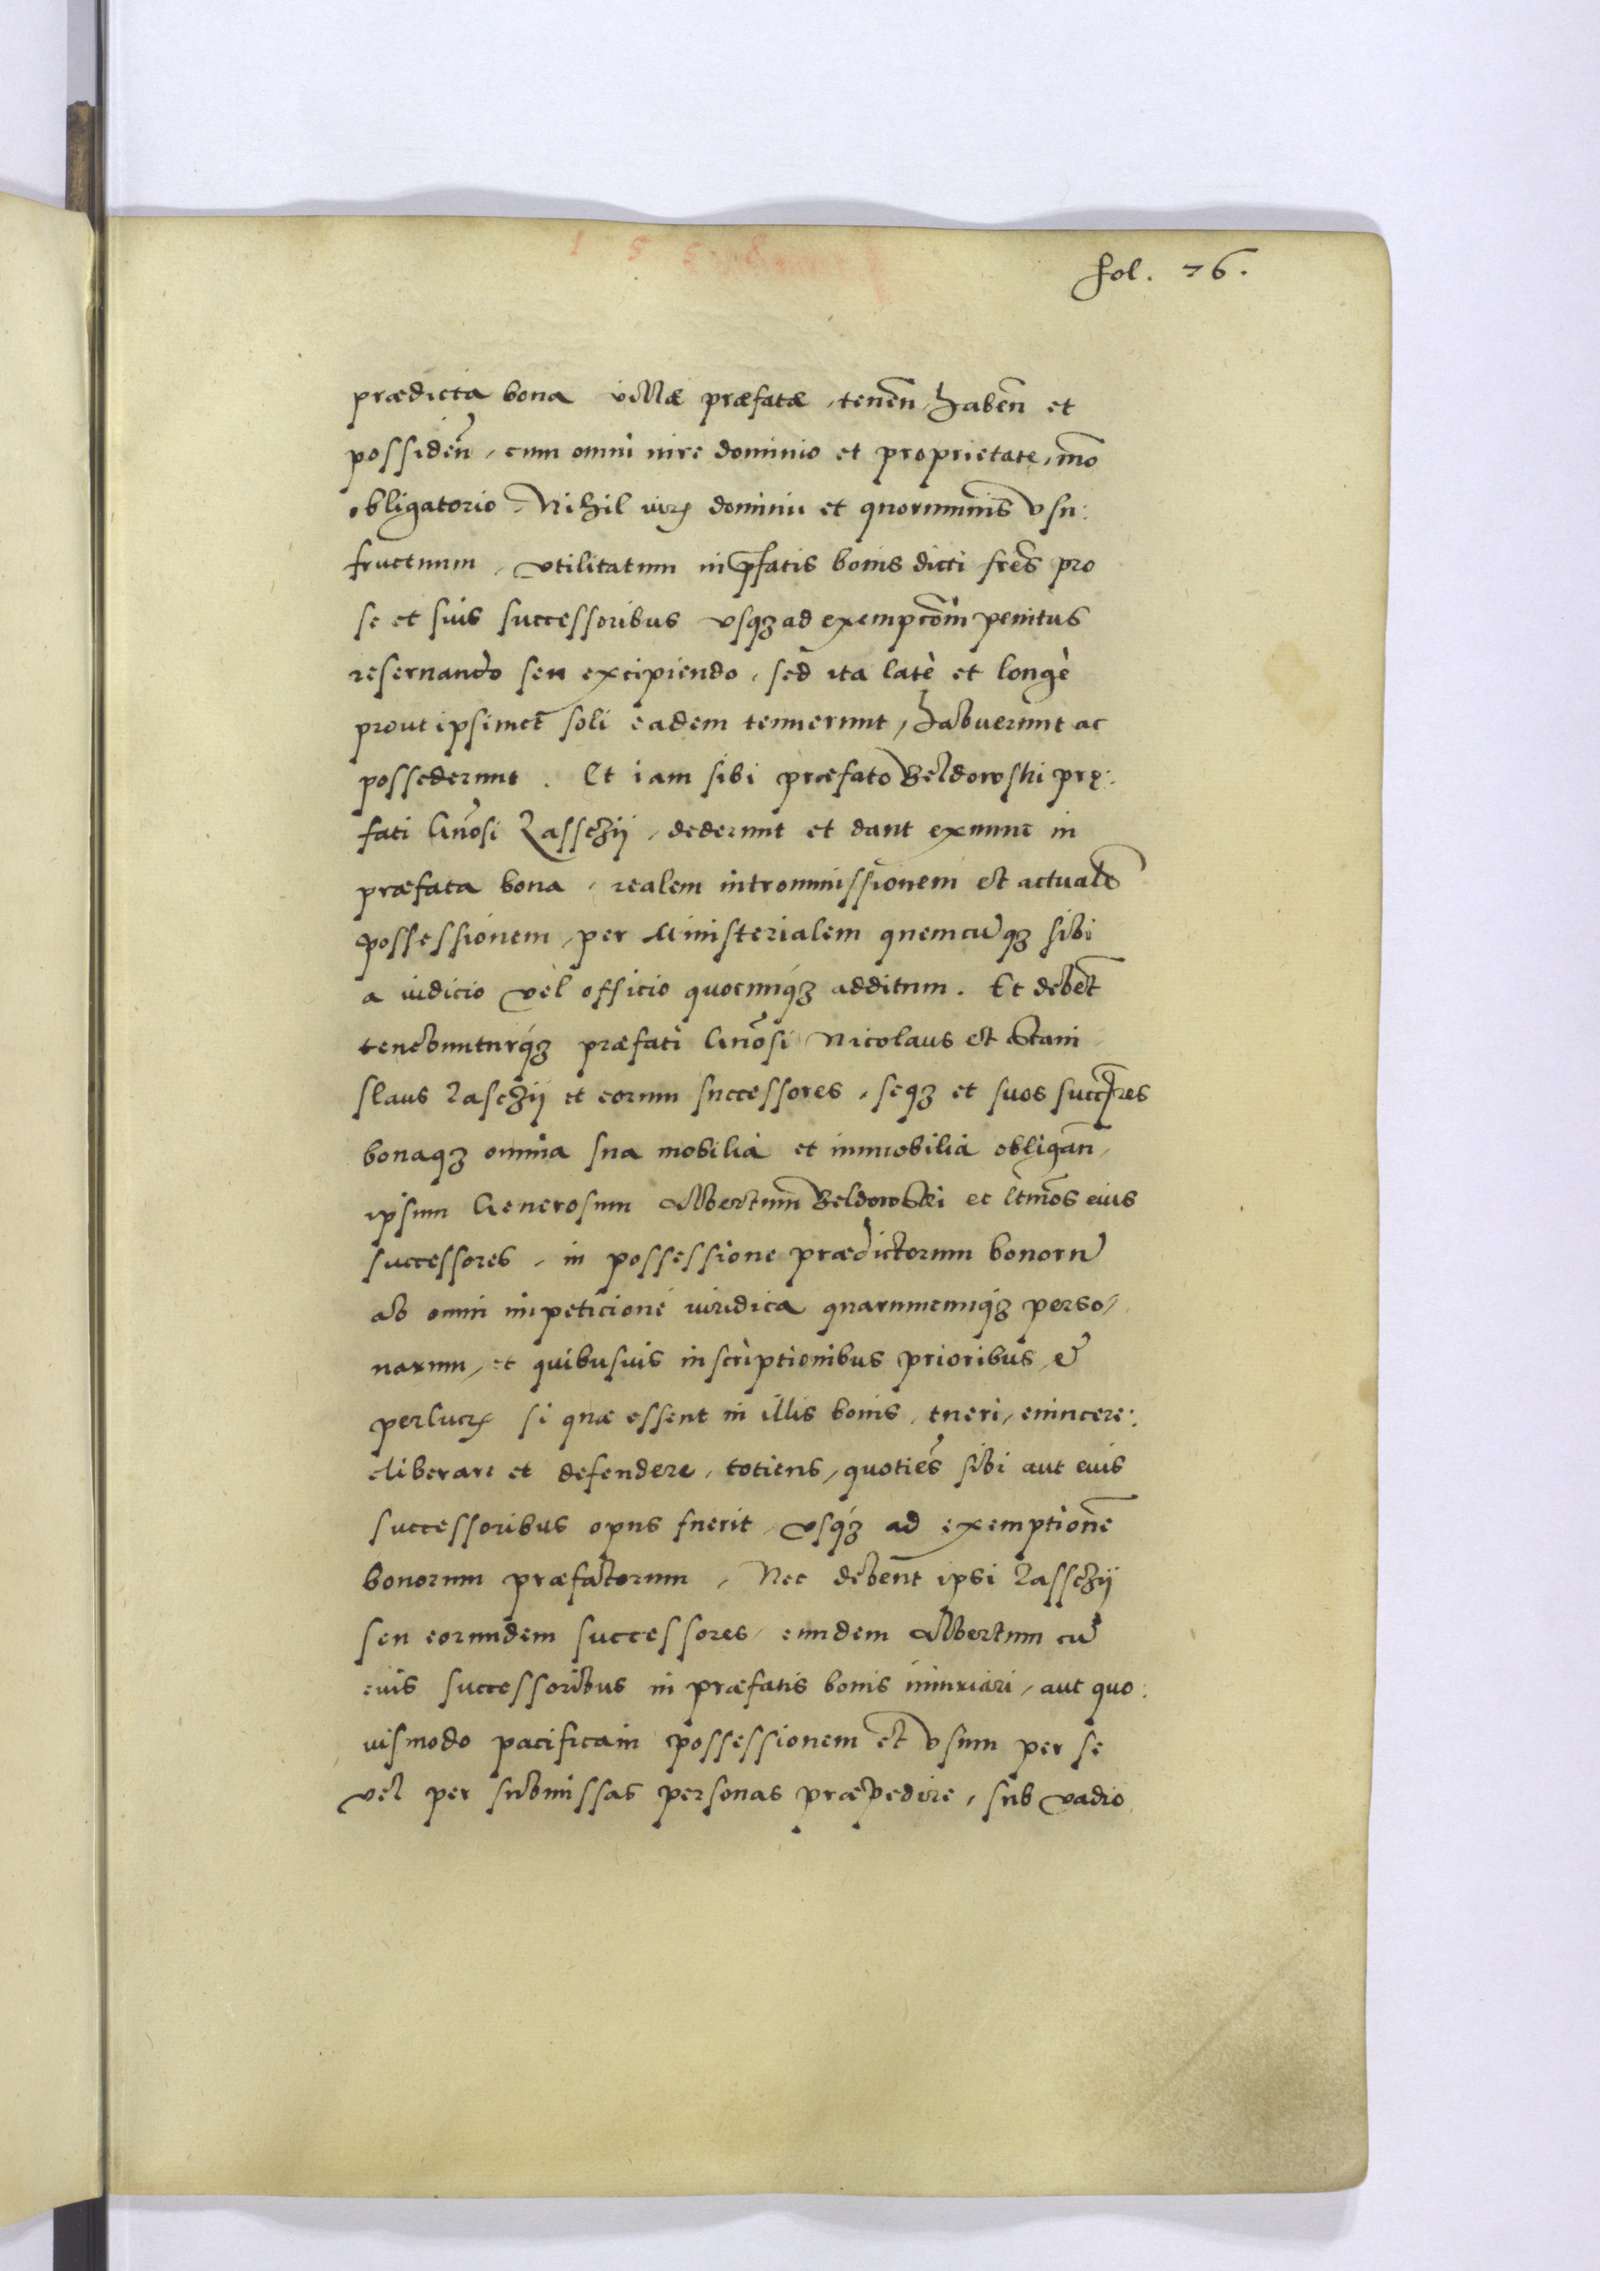 fol. 76.
prædicta bona villæ præfatæ, teneñ, habeñ et
possideñ, cum omni iure dominio et proprietate, mõ
obligatorio, Nihil iurꝭ dominii et quorumuis vsu:
fructuum, vtilitatum in p̃fatis bonis dicti frẽs pro
se et suis successoribus vsqꝫ ad exempcõm penitus
reseruando seu excipiendo, sed ita latè et longè
prout ipsimet soli eadem tenuerunt, habuerunt ac
possederunt. Et iam sibi præfato Beldowski prę:
fati Gñosi Lasschÿ, dederunt et dant exnunc in
præfata bona, realem intromissionem et actualẽ
possessionem, per Ministerialem quemcũqꝫ sibi
a iudicio vel officio quocunqꝫ additum. Et debẽt
tenebunturqꝫ præfati Gñosi Nicolaus et Stani
slaus Laschÿ et eorum successores, seqꝫ et suos succ̃res
bonaqꝫ omnia sua mobilia et immobilia obligañ,
ipsum Generosum Albertum Beldowski et ltĩmos eius
successores, in possessione prædictorum bonorũ
ab omni impeticione iuridica quarumcunqꝫ perso,
narum, et quibusuis inscriptionibus prioribus, et
perlucrꝭ si quæ essent in illis bonis, tueri, euincere:
eliberare et defendere, totiens, quotiẽs sibi aut eius
successoribus opus fuerit, vsqꝫ ad exemptionẽ
bonorum præfatorum, Nec debent ipsi Lasschÿ
seu eorundem successores, eundem Albertum cũ
eius successoribus in præfatis bonis iniuriari, aut quo:
uismodo pacificam possessionem et vsum per se
vel per submissas personas præpedire, sub vadio